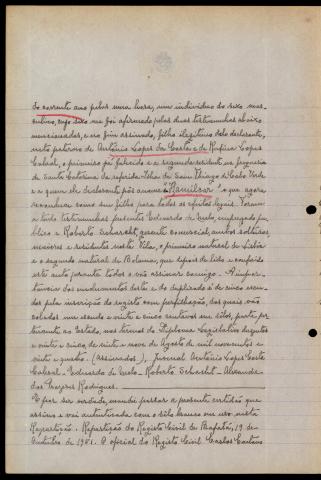 do corrente ano pelas uma hora, um individuo do sexo mas-
culino, cujo sexo me foi afirmado pelas duas testemunhas abaixo
mencionadas, e no fim assinado, filho ilegitimo dele declarante,
neto paterno de António Lopes da Costa e de Rufina Lopes
Cabral, o primeiro já falecido e a segunda residente na freguesia
de Santa Catarina da referida Ilha de São Thiago de Cabo Verde
e a quem ele declarante pôs o nome de "Amílcar" e que agora
reconhece como seu filho para todos os efeitos legais. Foram
a tudo testemunhas presentes Eduardo de Melo, empregado pu-
blico e Roberto Schacht, gerente comercial, ambos solteiros,
maiores e residentes nesta Vila, o primeiro natural de Lisbôa
e o segundo natural de Bolama, que depois de lido e conferido
este auto perante todos o vão assinar comigo. A impor-
tancia dos emolumentos deste e do duplicado é de cinco escu-
dos pela inscrição do registo com perfilhação, dos quais vão
colados um escudo e vinte e cinco centavos em sêlos, parte per-
tencente ao Estado, nos termos do Diploma Legislativo duzentos
e vinte e cinco, de vinte e nove de Agosto de mil novecentos e
vinte e quatro. (assinados), Juvenal António Lopes Costa
Cabral. Eduardo de Melo - Roberto Schacht -
dos Prazeres Rodrigues.
E por ser verdade, mandei passar a presente certidão que
assino e vai autenticada com o sêlo branco em uso nesta
Repartição. Repartição do Registo Civil de Bafatá, 19 de
de 1941. O oficial do Registo Civil Carlos Caetano